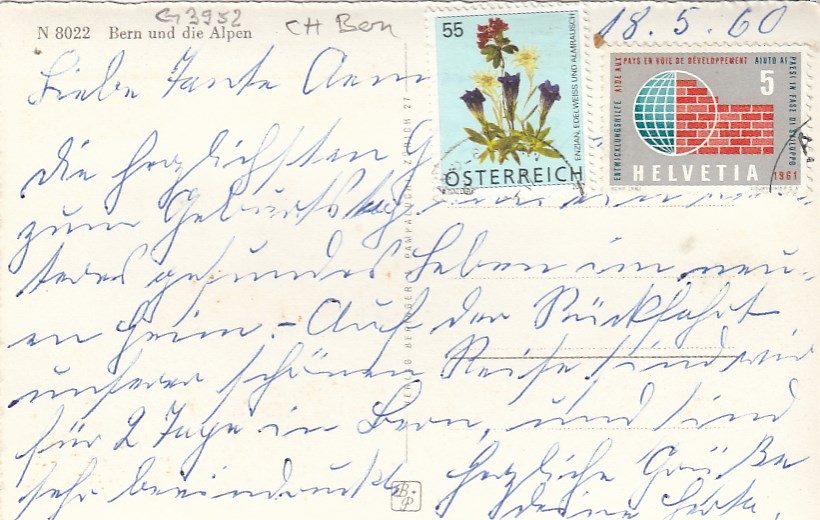 G 3952
CH Bern
18.5.60
N 8022 Bern und die Alpen
Liebe Tante
die herzlichsten G
zum Geburtstag
teres gesundes Leben im neu-
en Heim. - Auf der Rückfahrt
unserer schönen Reise sind wir
für 2 Tage in Bern, und sind
sehr beeindruckt. Herzliche Grüße
deine Herta.
55
ENZIAN, EDELWEISS UND ALMRAUSCH
ÖSTERREICH
ENTWICKLUNGSHILFE AIDE AUX PAYS EN VOIE DE DÉVELOPPEMENT AIUTO AI PAESI IN FASE DI SVILUPPO
5
HELVETIA
1961
VERLAG BERINGER & PAMPALUCHI ZÜRICH 27
B.P